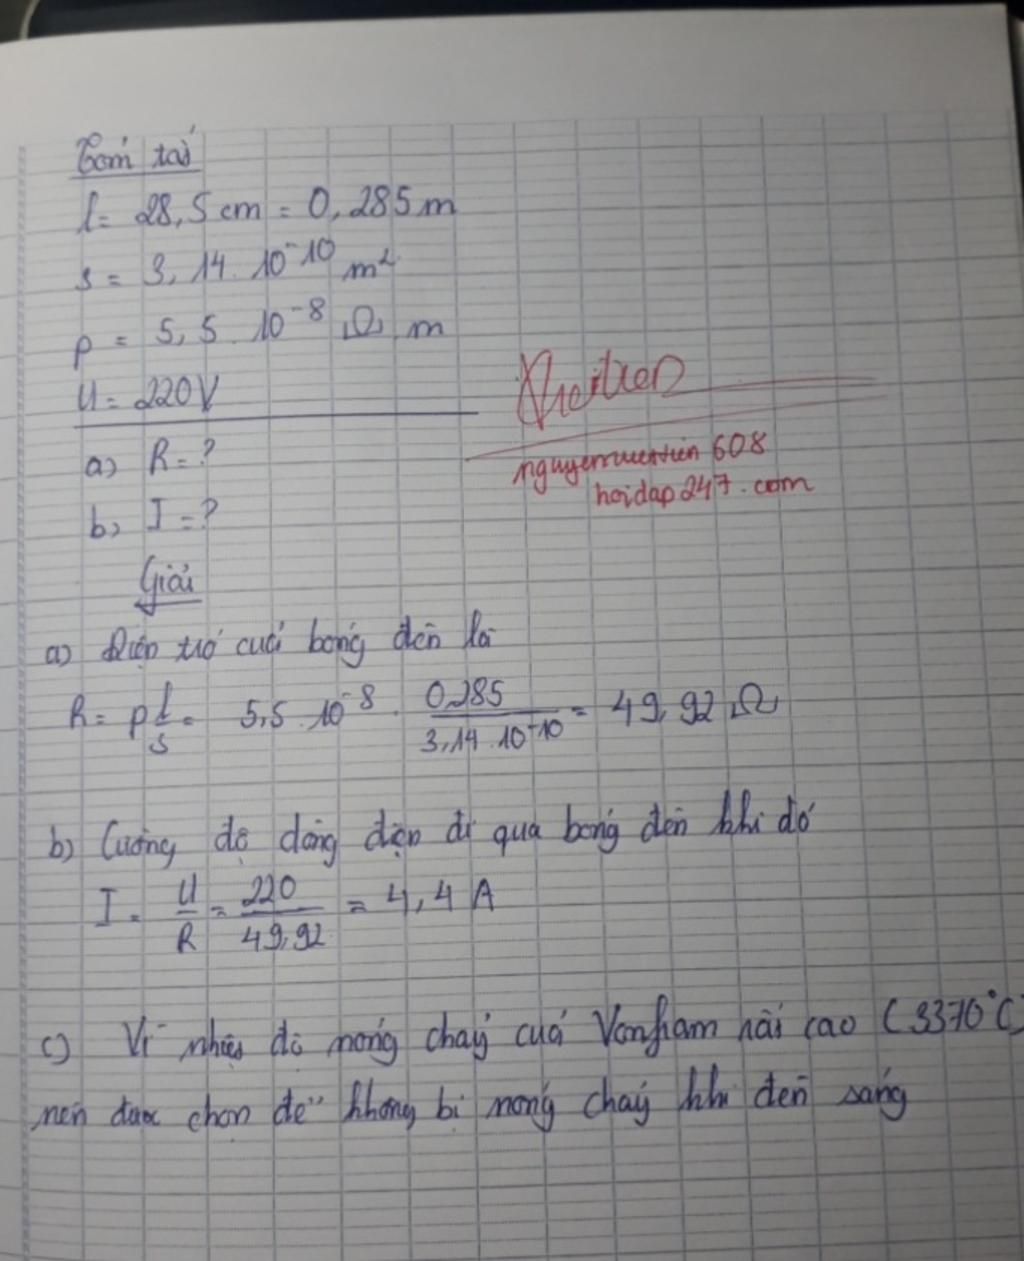 Tóm tắt
l = 28,5 cm = 0,285 m
s = 3,14. 10⁻¹⁰ m²
ρ = 5,5. 10⁻⁸ Ω m
U = 220V
a) R = ?
b) I = ?
nguyenvuentien 608
hoidap247.com
Giải
a) Điện trở cuả bóng đèn là
R = ρ l/s = 5,5. 10⁻⁸ . 0,285 / 3,14. 10⁻¹⁰ = 49,92 Ω
b) Cường độ dòng điện đi qua bóng đèn khi đó
I = U/R = 220/49,92 = 4,4 A
c) Vì nhiệt độ nóng chảy cuả Vonfram cao (3370°C)
nên được chọn để không bị nóng chảy khi đèn sáng